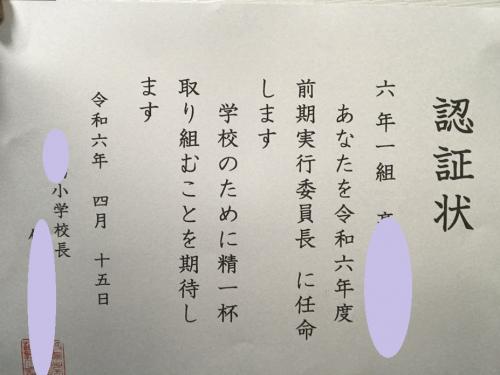 認証状
六年一組
あなたを令和六年度
前期実行委員長 に任命
します
学校のために精一杯
取り組むことを期待し
ます
令和六年 四月 十五日
小学校長